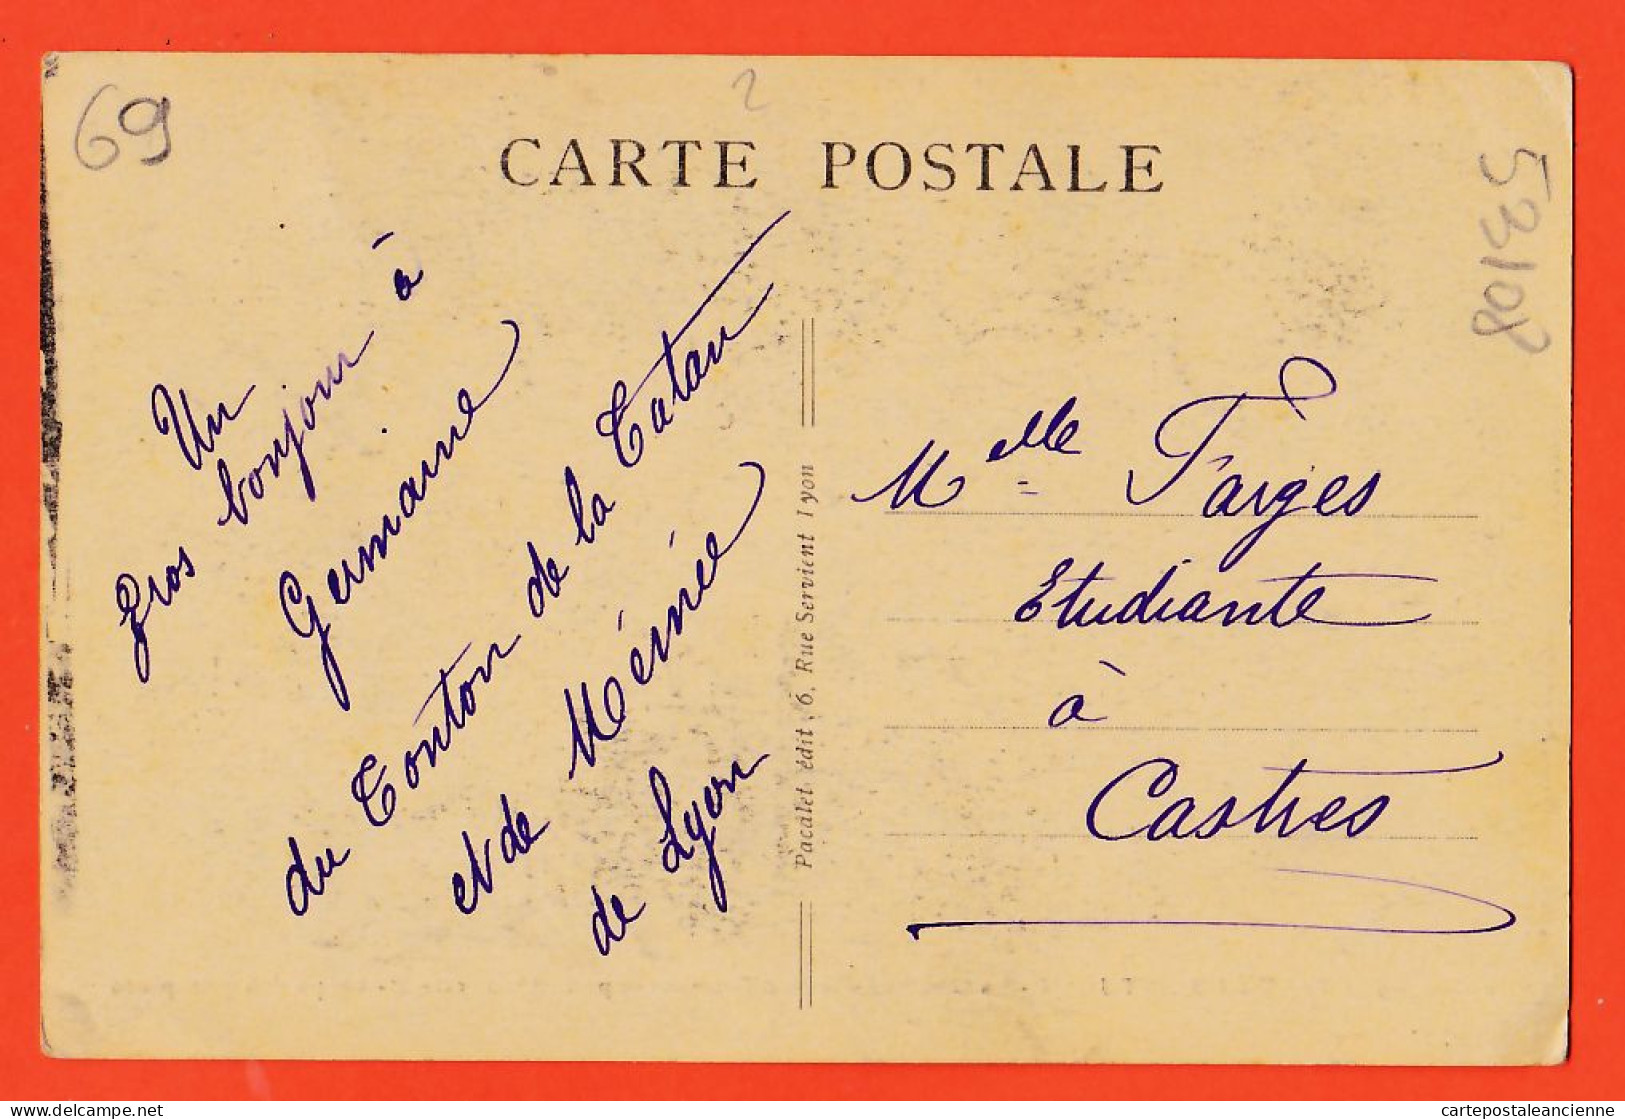 69
2
CARTE POSTALE
53108
Un
gros bonjour à
Germaine
du Tonton de la Tatan
et de Mémée
de Lyon
Pacalet édit, 6, Rue Servient Lyon
Melle Farges
Etudiante
à
Castres
delcampe.net
cartepostaleancienne